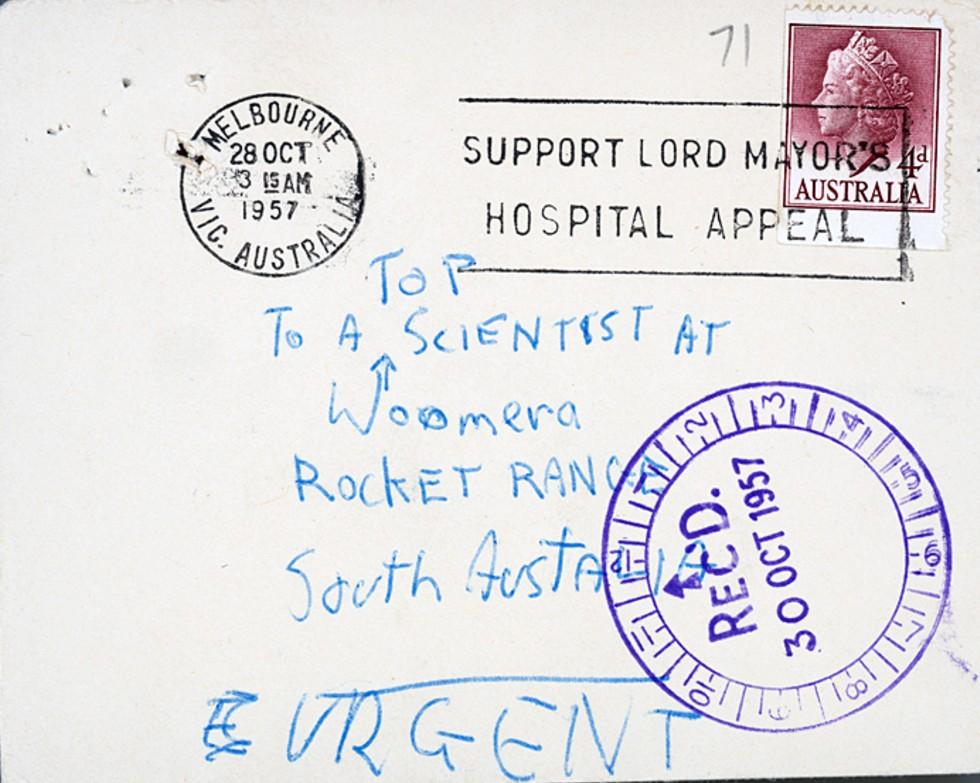 71
MELBOURNE
28 OCT
3 15 AM
1957
VIC. AUSTRALIA
SUPPORT LORD MAYOR'S
HOSPITAL APPEAL
4d
AUSTRALIA
TOP
To A SCIENTIST AT
Woomera
ROCKET RANGE
South AustALIA
URGENT
1 2 3 4 5 6 7 8 9 10 11 12
REC'D.
30 OCT 1957